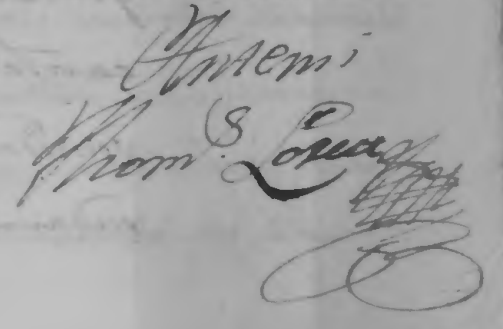 Antemi
Thom.s Lorca